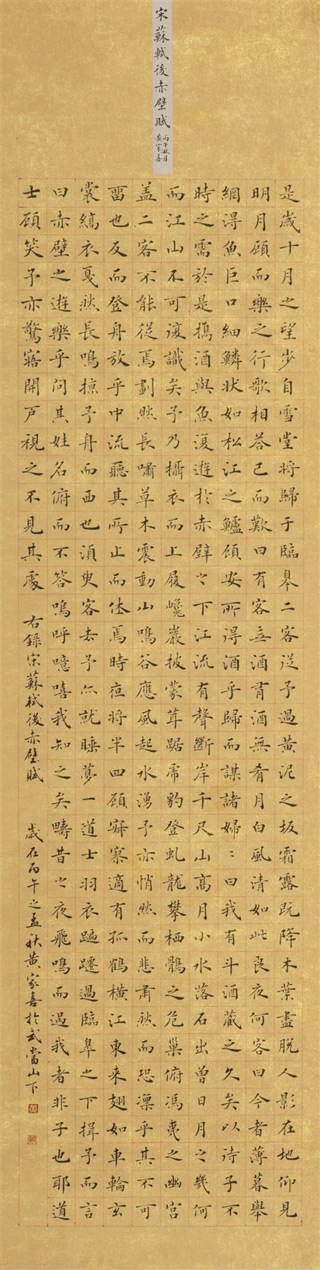 宋蘇軾後赤壁賦 丙午秋月
黄家喜
是歲十月之望步自雪堂將歸于臨皋二客從予過黃泥之坂霜露既降木葉盡脫人影在地仰見
明月顧而樂之行歌相答已而歎曰有客無酒有酒無肴月白風清如此良夜何客曰今者薄暮舉
網得魚巨口細鱗狀如松江之鱸顧安所得酒乎歸而謀諸婦〻曰我有斗酒藏之久矣以待子不
時之需於是攜酒與魚復遊於赤壁之下江流有聲斷岸千尺山高月小水落石出曾日月之幾何
而江山不可復識矣予乃攝衣而上履巉巖披蒙茸踞虎豹登虬龍攀栖鶻之危巢俯馮夷之幽宮
盖二客不能從焉劃然長嘯草木震動山鳴谷應風起水湧予亦悄然而悲肅然而恐凜乎其不可
畱也反而登舟放乎中流聽其所止而休焉時夜將半四顧寂寥適有孤鶴橫江東來翅如車輪玄
裳縞衣戛然長鳴掠予舟而西也須臾客去予亦就睡夢一道士羽衣蹁躚過臨皋之下揖予而言
曰赤壁之遊樂乎問其姓名俯而不答嗚呼噫嘻我知之矣疇昔之夜飛鳴而過我者非子也耶道
士顧笑予亦驚寤開戶視之不見其處 右錄宋蘇軾後赤壁賦 歲在丙午之孟秋黃家喜於武當山下